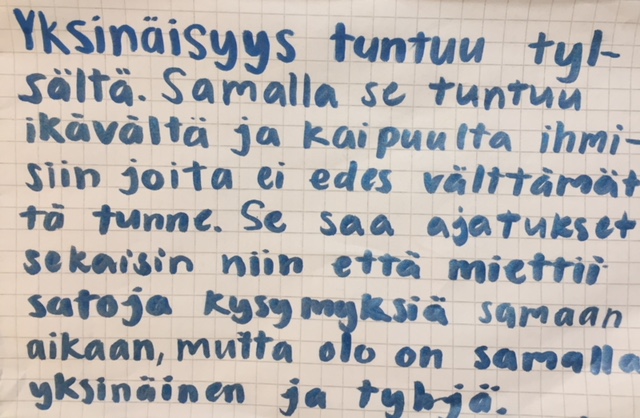 Yksinäisyys tuntuu tyl-
sältä. Samalla se tuntuu
ikävältä ja kaipuulta ihmi-
siin joita ei edes välttämät
tä tunne. Se saa ajatukset
sekaisin niin että miettii
satoja kysymyksiä samaan
aikaan, mutta olo on samalla
yksinäinen ja tyhjä.